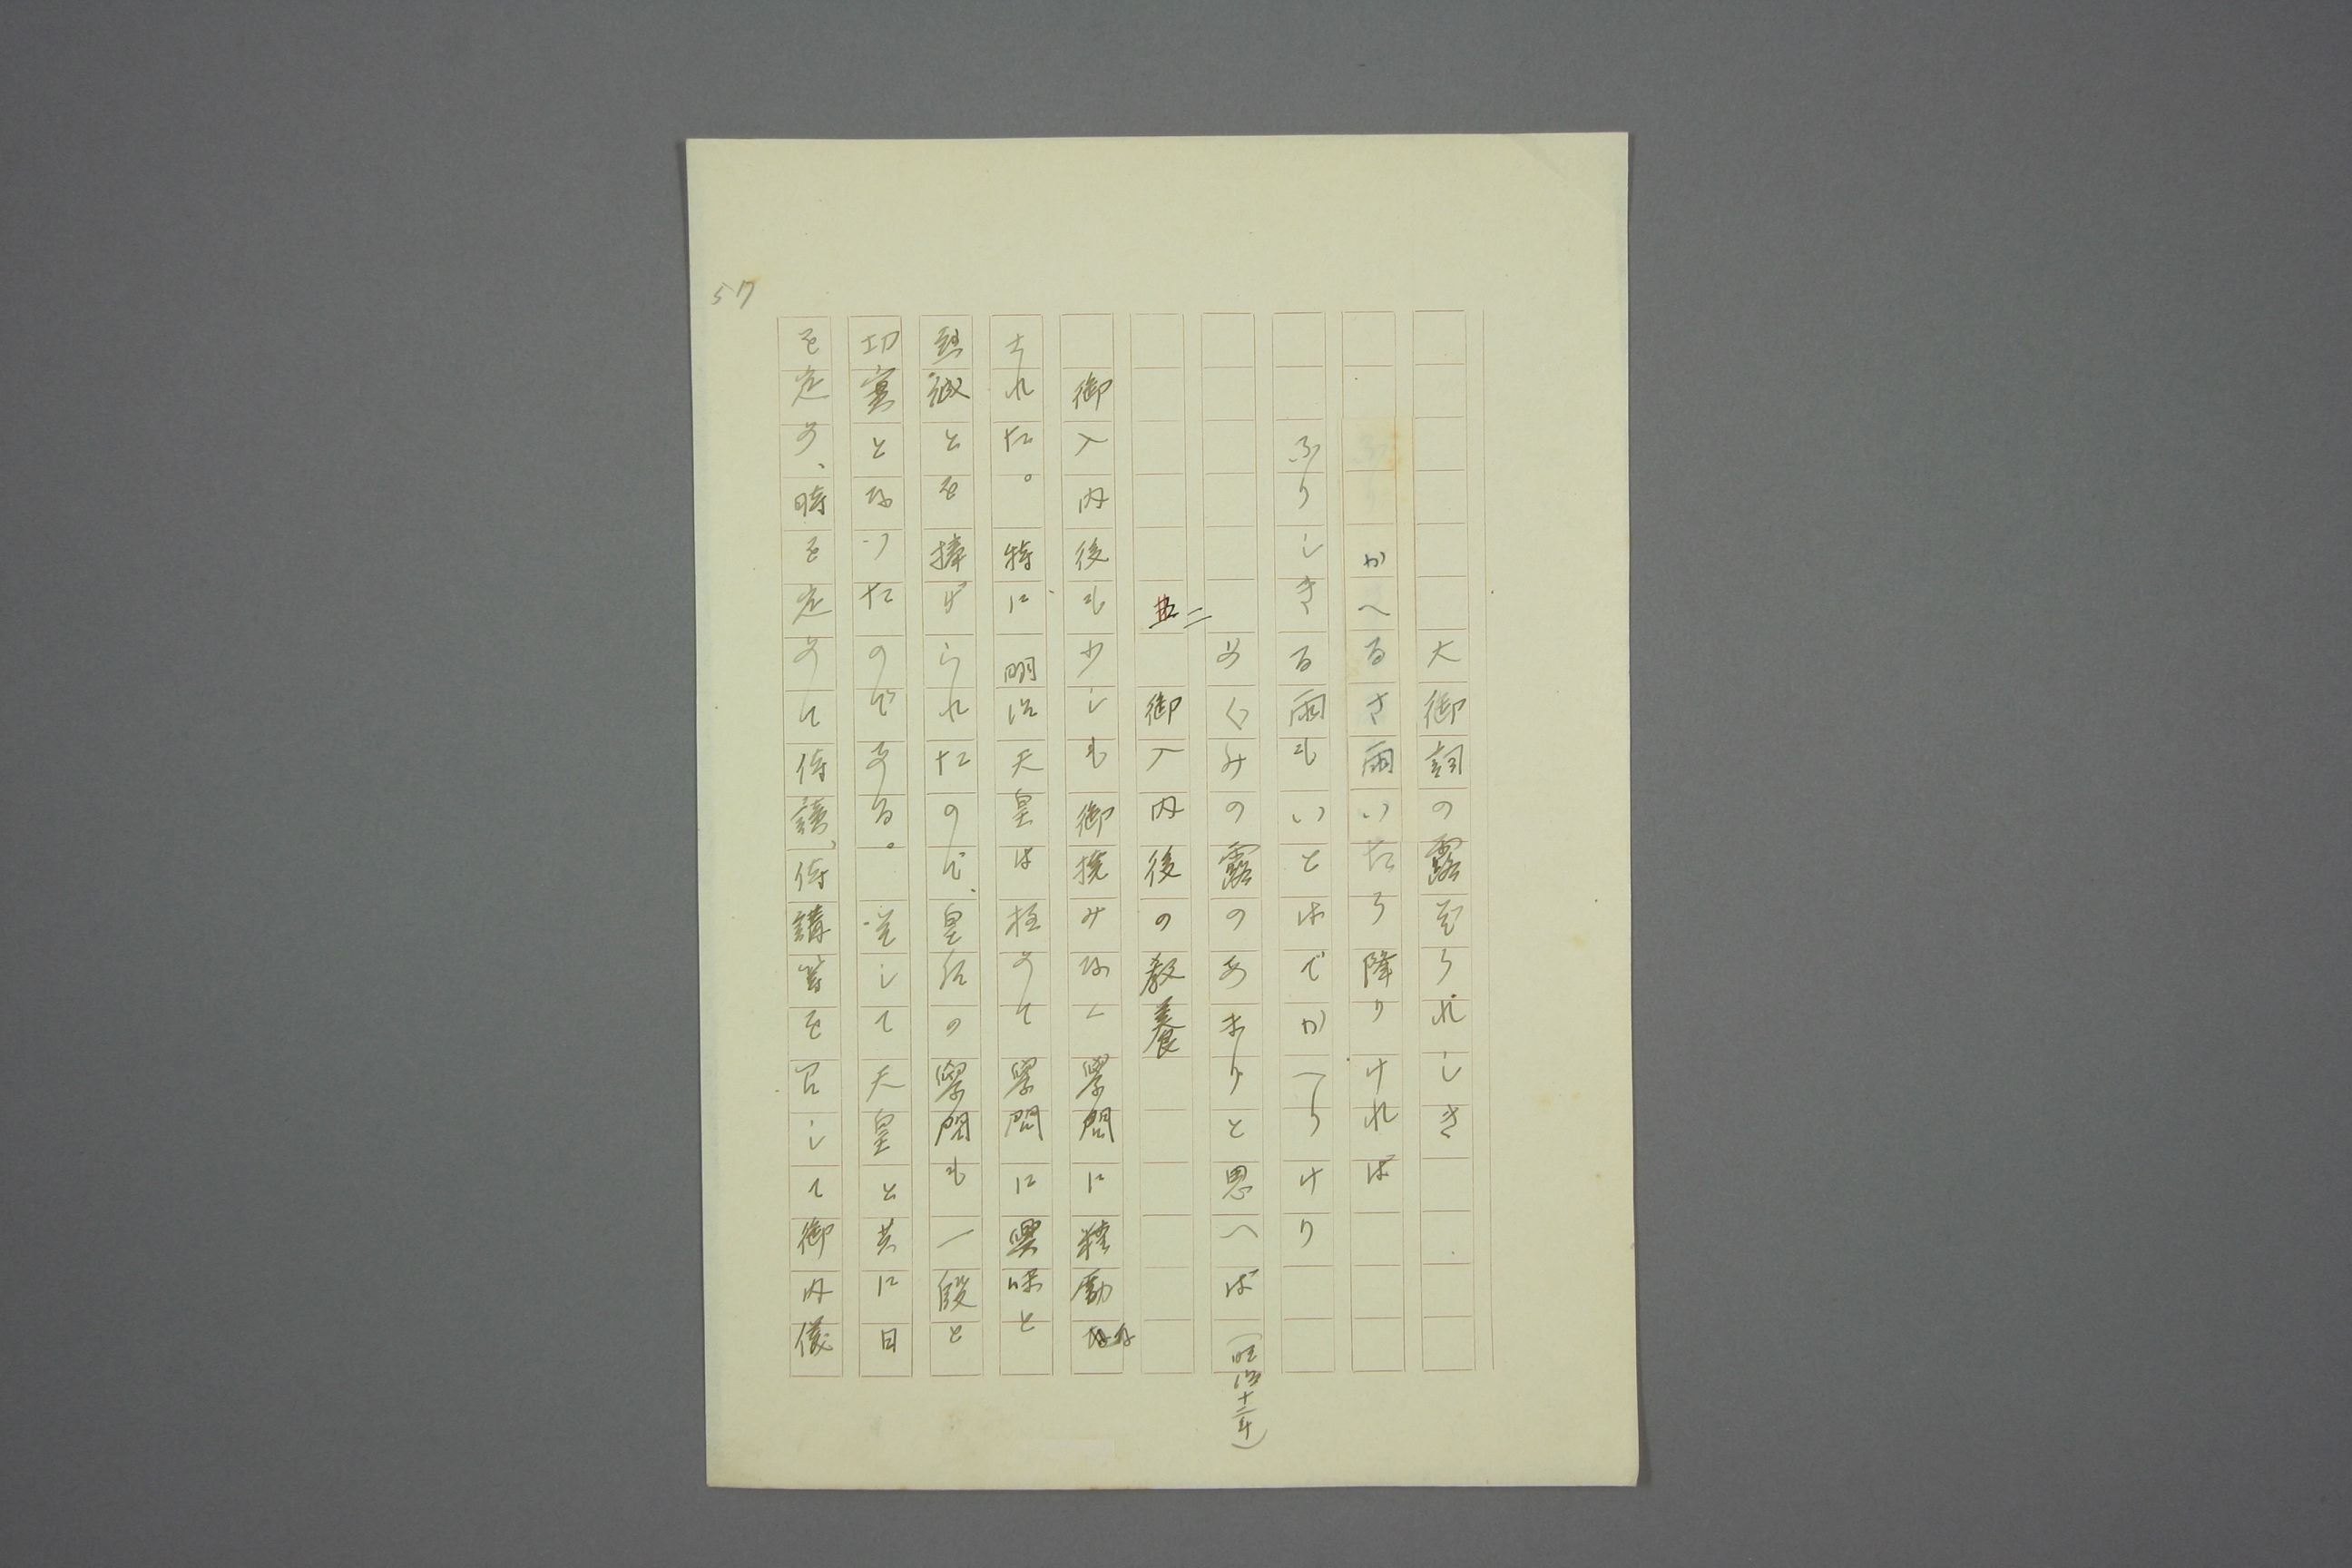 大御詞の露ぞうれしき
かへるさ雨いたう降りければ
ふりしきる雨もいとはでかへりけり
めぐみの露のあまりと思へば（明治十二年）
二 御入内後の教養
御入内後も少しも御撓みなく學問に精勵な
された。特に明治天皇は極めて學問に興味と
熱誠とを捧げられたので、皇后の學問も一段と
切實となつたのである。そして天皇と共に日
を定め、時を定めて侍讀、侍講等を召して御内儀
57